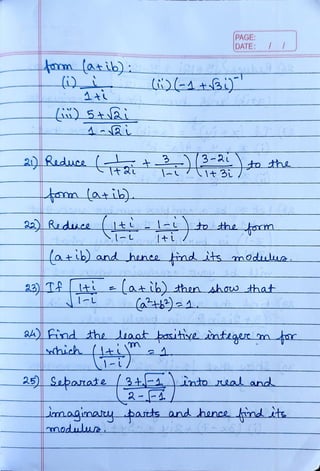 PAGE:
DATE: / /
form (a+ib):
(i) i/(1+i) (ii) (-1+√3i)⁻¹
(iii) (5+√2i)/(1-√2i)
21) Reduce (1/(1+2i) + 3/(1-i)) ((3-2i)/(1+3i)) to the
form (a+ib).
22) Reduce ((1+i)/(1-i) - (1-i)/(1+i)) to the form
(a+ib) and hence find its modulus.
23) If √((1+i)/(1-i)) = (a+ib) then show that
(a²+b²)=1.
24) Find the least positive integer m for
which ((1+i)/(1-i))ᵐ = 1.
25) Separate ((3+√-1)/(2-√-1)) into real and
imaginary parts and hence find its
modulus.